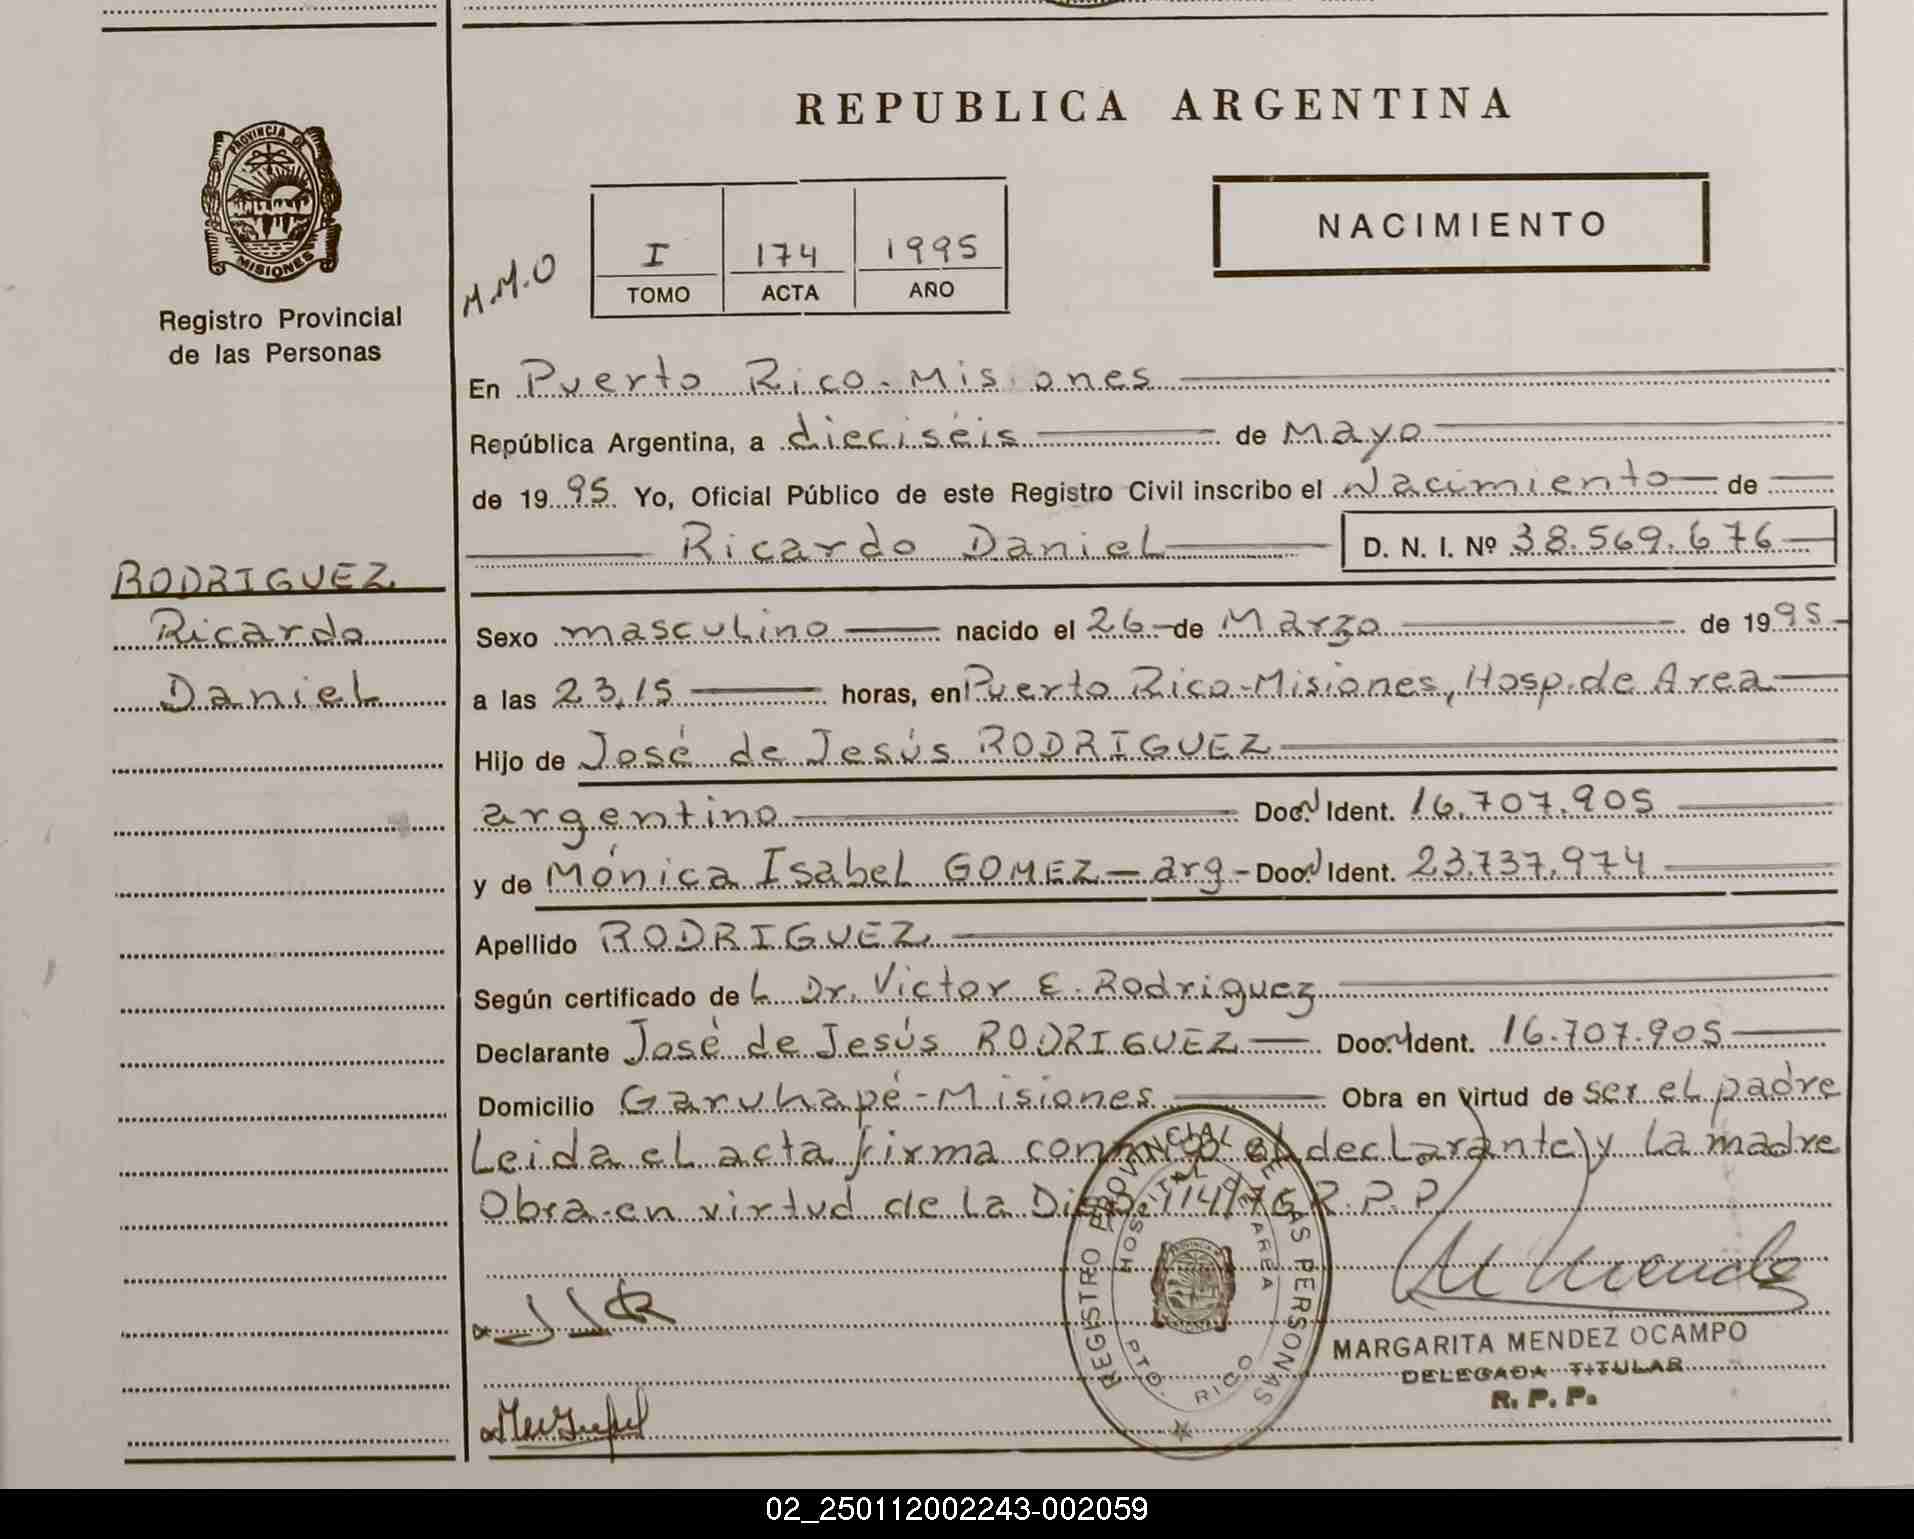 REPUBLICA ARGENTINA
PROVINCIA DE MISIONES
Registro Provincial
de las Personas
M.M.O
I 174 1995
TOMO ACTA AÑO
NACIMIENTO
RODRIGUEZ
Ricardo
Daniel
En Puerto Rico-Misiones
República Argentina, a dieciséis de Mayo
de 1995 Yo, Oficial Público de este Registro Civil inscribo el Nacimiento de
Ricardo Daniel D. N. I. Nº 38.569.676
Sexo masculino nacido el 26 de Marzo de 1995
a las 23,15 horas, en Puerto Rico-Misiones, Hosp. de Area
Hijo de José de Jesús RODRIGUEZ
argentino Doc. N Ident. 16.707.905
y de Mónica Isabel GOMEZ - arg - Doc. N Ident. 23.737.974
Apellido RODRIGUEZ
Según certificado del Dr. Victor E. Rodriguez
Declarante José de Jesús RODRIGUEZ Doc. N Ident. 16.707.905
Domicilio Garuhapé-Misiones Obra en virtud de ser el padre
Leida el acta firma conmigo el declarante y la madre
Obra en virtud de la Disp. 114/76 R.P.P.
REGISTRO PROVINCIAL DE LAS PERSONAS
HOSPITAL DE AREA
PTO. RICO
MARGARITA MENDEZ OCAMPO
DELEGADA TITULAR
R. P. P.
02_250112002243-002059